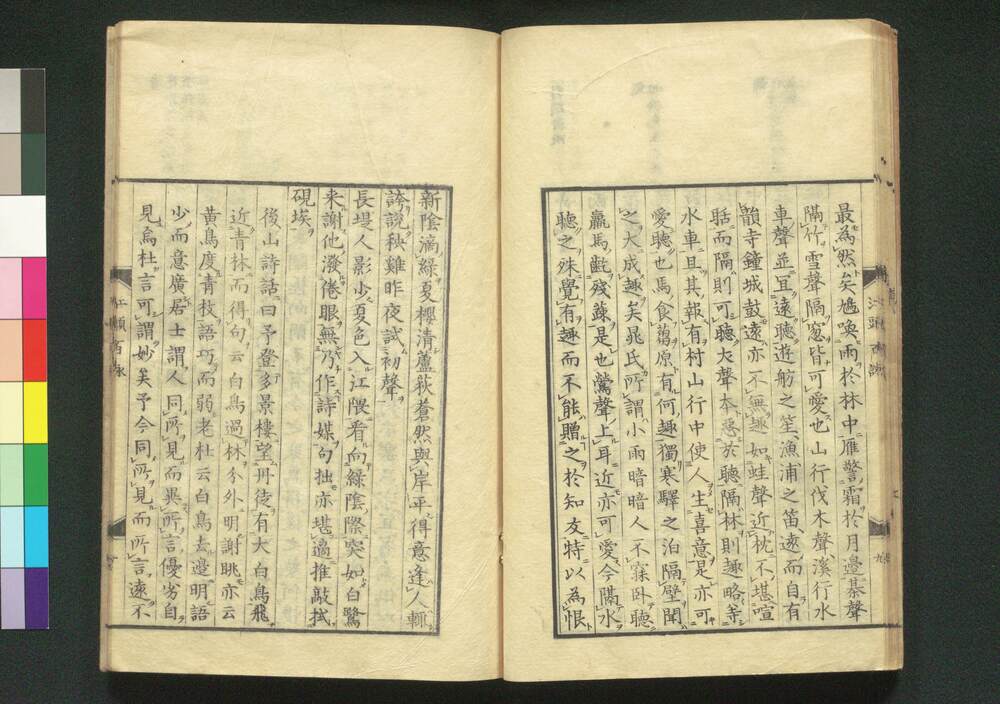 最為然矣鳩喚雨於林中雁警霜於月邊碁聲
隔竹雪聲隔窓皆可愛也山行伐木聲溪行水
車聲並宜遠聽遊舫之笙漁浦之笛遠而自有
韻寺鐘城鼓遠亦不無趣如蛙聲近枕不堪喧
聒而隔則可聽犬聲本惡於聽隔林則趣略等
水車且其報有村山行中使人生喜意是亦可
愛聽也馬食萬原有何趣獨寒驛之泊隔壁聞
之大成趣矣晁氏所謂小雨暗暗人不寐臥聽
羸馬齕殘蔬是也鶯聲上耳近亦可愛今隔水
聽之殊覺有趣而不能贈之於知友特以為恨
新陰滴綠夏櫻清蘆荻蒼然與岸平得意逢人輙
誇說秧雞昨夜試初聲
長堤人影少夏色入江隈看向綠陰際突如白鷺
来謝他潑倦眼無乃作詩媒句拙亦堪過推敲拭
硯埃
後山詩話曰予登多景樓望丹徒有大白鳥飛
近青林而得句云白鳥過林分外明謝眺亦云
黄鳥度青枝語巧而弱老杜云白鳥去邊明語
少而意廣居士謂人同所見而異所言優劣自
見烏杜言可謂妙矣予今同所見而所言遠不